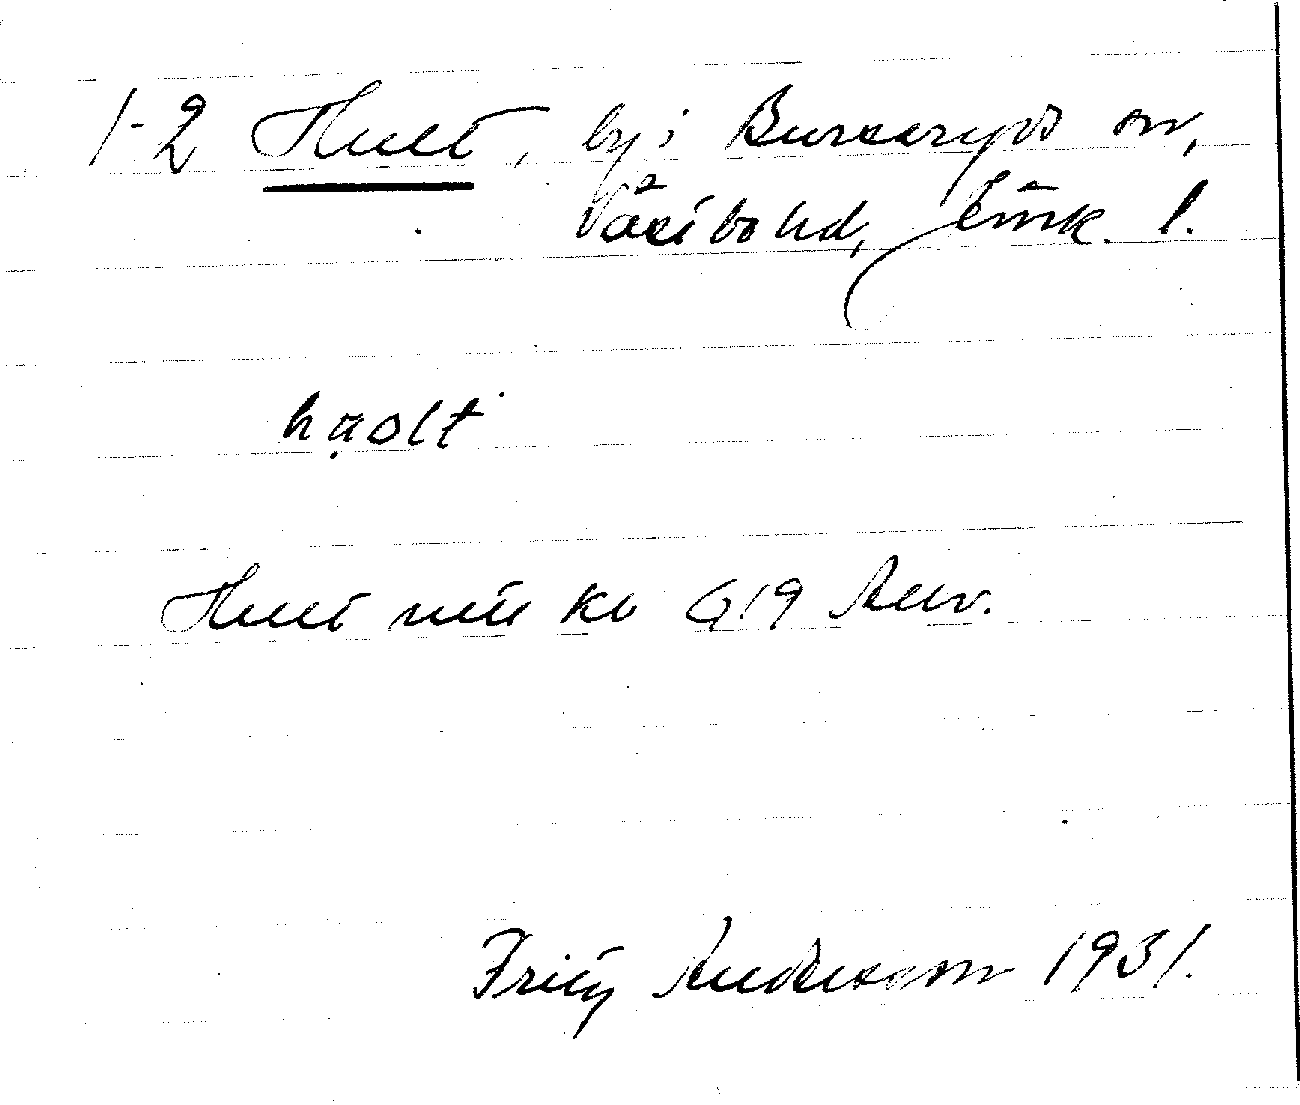 1-2 Hult, by i Burseryds sn,
Västbo hd, Jönk. l.
hạolt
Hult uti kb G19 Anv.
Fritz Andersson 1931.